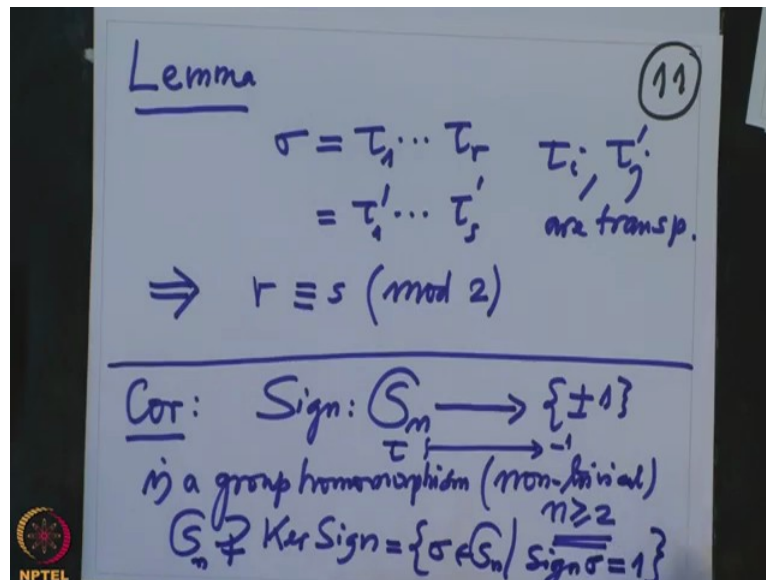 Lemma
11
σ = τ₁ ⋯ τᵣ τᵢ, τ'ⱼ
= τ'₁ ⋯ τ'ₛ are transp.
⇒ r ≡ s (mod 2)
Cor: Sign: 𝔖ₙ ⟶ {±1}
τ ⟼ -1
is a group homomorphism (non-trivial)
n≥2
𝔖ₙ ⊋ Ker Sign = {σ ∈ 𝔖ₙ | sign σ = 1}
NPTEL